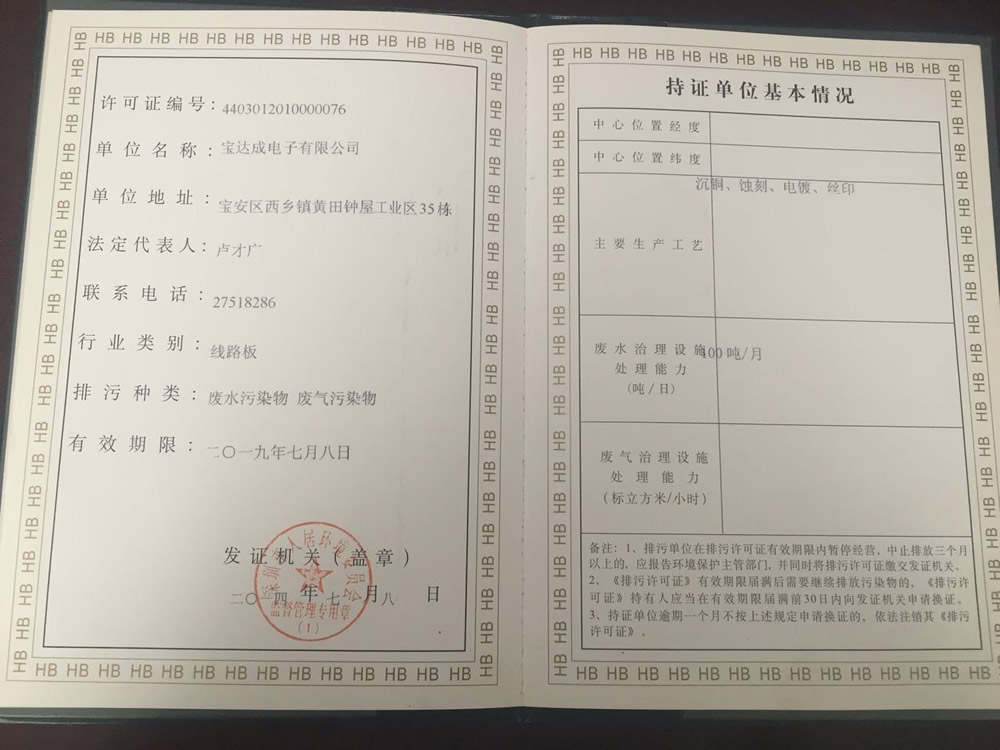 许可证编号：4403012010000076
单位名称：宝达成电子有限公司
单位地址：宝安区西乡镇黄田钟屋工业区35栋
法定代表人：卢才广
联系电话：27518286
行业类别：线路板
排污种类：废水污染物 废气污染物
有效期限：二〇一九年七月八日
发证机关（盖章）
二〇 四 年 七 月 八 日
深圳市人居环境委员会
监督管理专用章
（1）
持证单位基本情况
中心位置经度
中心位置纬度
沉铜、蚀刻、电镀、丝印
主要生产工艺
废水治理设施
处理能力
（吨/日）
400吨/月
废气治理设施
处理能力
（标立方米/小时）
备注：1、排污单位在排污许可证有效期限内暂停经营、中止排放三个月
以上的，应报告环境保护主管部门，并同时将排污许可证缴交发证机关。
2、《排污许可证》有效期限届满后需要继续排放污染物的，《排污许
可证》持有人应当在有效期限届满前30日内向发证机关申请换证。
3、持证单位逾期一个月不按上述规定申请换证的，依法注销其《排污
许可证》。